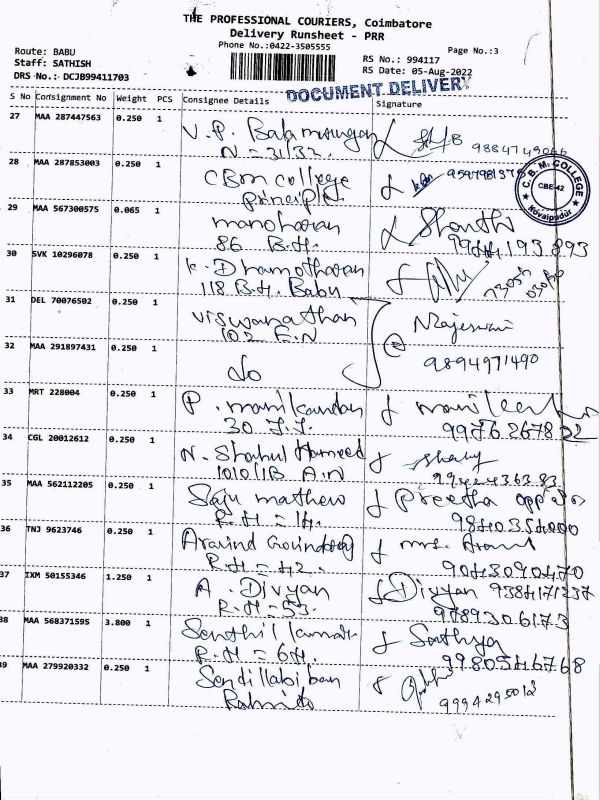 THE PROFESSIONAL COURIERS, Coimbatore
Delivery Runsheet - PRR
Phone No.:0422-3505555
Page No.:3
Route: BABU
Staff: SATHISH
DRS No.: DCJB99411703
RS No.: 994117
RS Date: 05-Aug-2022
DOCUMENT DELIVERY
S No Consignment No Weight PCS Consignee Details Signature
27 MAA 287447563 0.250 1 V.P. Balamurugan
N = 31/32.
28 MAA 287853003 0.250 1 CBM college
principle.
C.B.M. COLLEGE
CBE-42
Kovaipudur
29 MAA 567300575 0.065 1 manoharan Shanthi
86 B.H. 9944193893
30 SVK 10296078 0.250 1 K. Dhamotharan
118 B.H. Babu
31 DEL 70076502 0.250 1 Viswanathan Rajeswari
102 E.N
32 MAA 291897431 0.250 1 do 9894971490
33 MRT 228004 0.250 1 P. manikandan
30 J.J. 9976267822
34 CGL 20012612 0.250 1 N. Shahul Hameed
1010/1B A.N
35 MAA 562112205 0.250 1 Saju mathew Preetha
R.H = 14. 9840354000
36 TNJ 9623746 0.250 1 Aravind Govindaraj mrs.
R.H = 42. 9043090470
37 IXM 50155346 1.250 1 A. Divyan Divyan 9384171237
R.H = 53. 9789306173
38 MAA 568371595 3.800 1 Senthil kumar Sathya
R.H = 64. 9980546768
39 MAA 279920332 0.250 1
9994295012